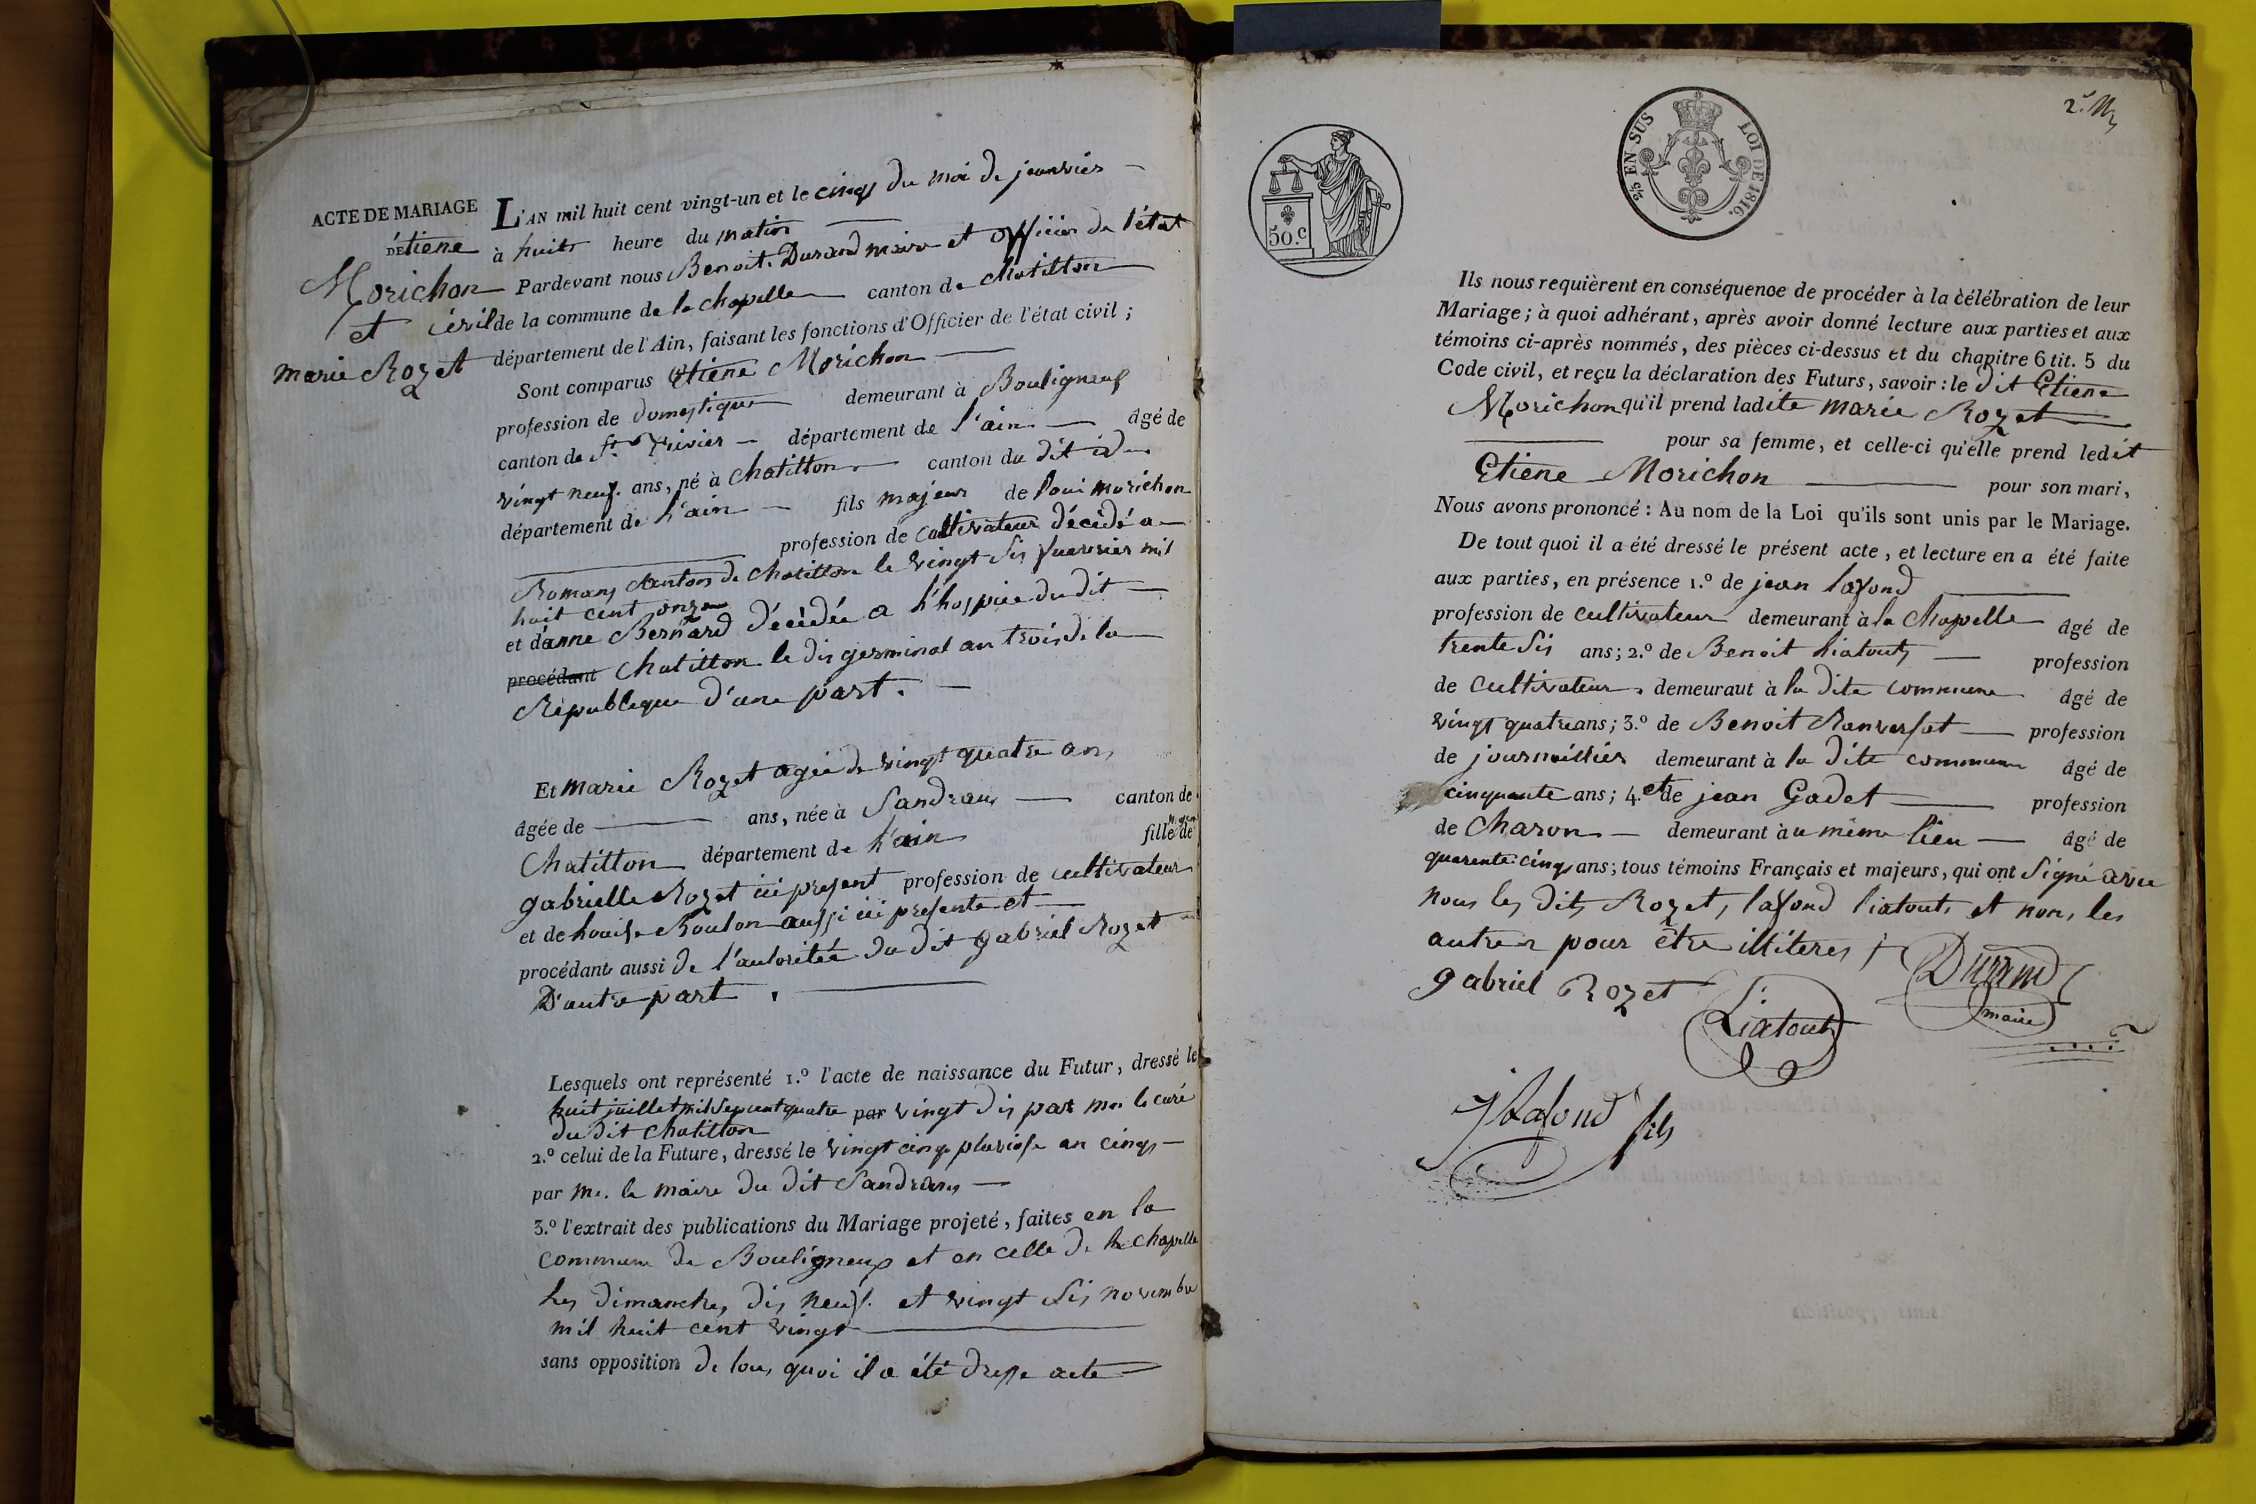 ACTE DE MARIAGE
DÉtiene
Morichon
et
marie Rozet
L'AN mil huit cent vingt-un et le cinq du moi de janvier
à huit heure du matin
Pardevant nous Benoit Durand maire et officier de l'état
civil de la commune de la chapelle canton de chatillon
département de l'Ain, faisant les fonctions d'Officier de l'état civil ;
Sont comparus Etiene Morichon
profession de domestique demeurant à Bouligneux
canton de St. Trivier département de l'ain âgé de
vingt neuf ans, né à chatillon canton du dit id
département de l'ain fils majeur de loui morichon
profession de cultivateur décédé a
Romans canton de chatillon le vingt sis fuervier mil
huit cent onze
et d'anne Bernard décédée a l'hospice du dit
procédant chatillon le dis germinal an trois de la
Republique d'une part.
Et marie Rozet agée de vingt quatre ans
âgée de ans, née à Sandrans canton de
Chatillon département de l'ain fille de
gabrielle Rozet ici present profession de cultivateur
et de louise Boulon aussi ici presente et
procédante aussi de l'autoritée du dit gabriel Rozet
D'autre part.
Lesquels ont représenté 1.º l'acte de naissance du Futur, dressé le
huit juillet mil sepcent quatre par vingt dis par mr le curé
du dit chatillon
2.º celui de la Future, dressé le vingt cinq pluviose an cinq
par mr. le maire du dit Sandrans
3.º l'extrait des publications du Mariage projeté, faites en la
commune de Bouligneux et en celle de la chapelle
les dimanches dis neuf et vingt sis novembre
mil huit cent vingt
sans opposition de tous quoi il a été dresse acte
50.c
2/5 EN SUS LOI DE 1816.
Ils nous requièrent en conséquence de procéder à la célébration de leur
Mariage ; à quoi adhérant, après avoir donné lecture aux parties et aux
témoins ci-après nommés, des pièces ci-dessus et du chapitre 6 tit. 5 du
Code civil, et reçu la déclaration des Futurs, savoir : le dit Etiene
Morichon qu'il prend ladite marie Rozet
pour sa femme, et celle-ci qu'elle prend ledit
Etiene Morichon pour son mari,
Nous avons prononcé : Au nom de la Loi qu'ils sont unis par le Mariage.
De tout quoi il a été dressé le présent acte, et lecture en a été faite
aux parties, en présence 1.º de jean lafond
profession de cultivateur demeurant à la chapelle âgé de
trente sis ans ; 2.º de Benoit liatout profession
de cultivateur demeuraut à la dite commune âgé de
vingt quatre ans ; 3.º de Benoit Ranversat profession
de journaillier demeurant à la dite commune âgé de
cinquante ans ; 4.º et de jean Gadet profession
de Charon demeurant à u même lieu âgé de
quarente cinq ans ; tous témoins Français et majeurs, qui ont signé avec
nous les dits Rozet, lafond liatout et non, les
autres pour être illiteres
gabriel Rozet
Durand
maire
Liatout
J Lafond fils